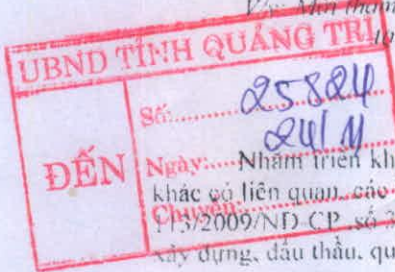 UBND TỈNH QUẢNG TRỊ
ĐẾN
Số:........ 25824
Ngày:..... 24/11
Chuyển:
Nhằm triển kh
khác có liên quan, các
113/2009/NĐ-CP, số 3
xây dựng, đấu thầu, qu